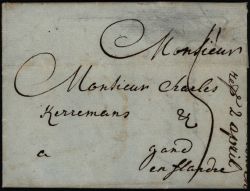 Monsieur
Monsieur Charles
Kerremans &
a gand
en flandre
2 april